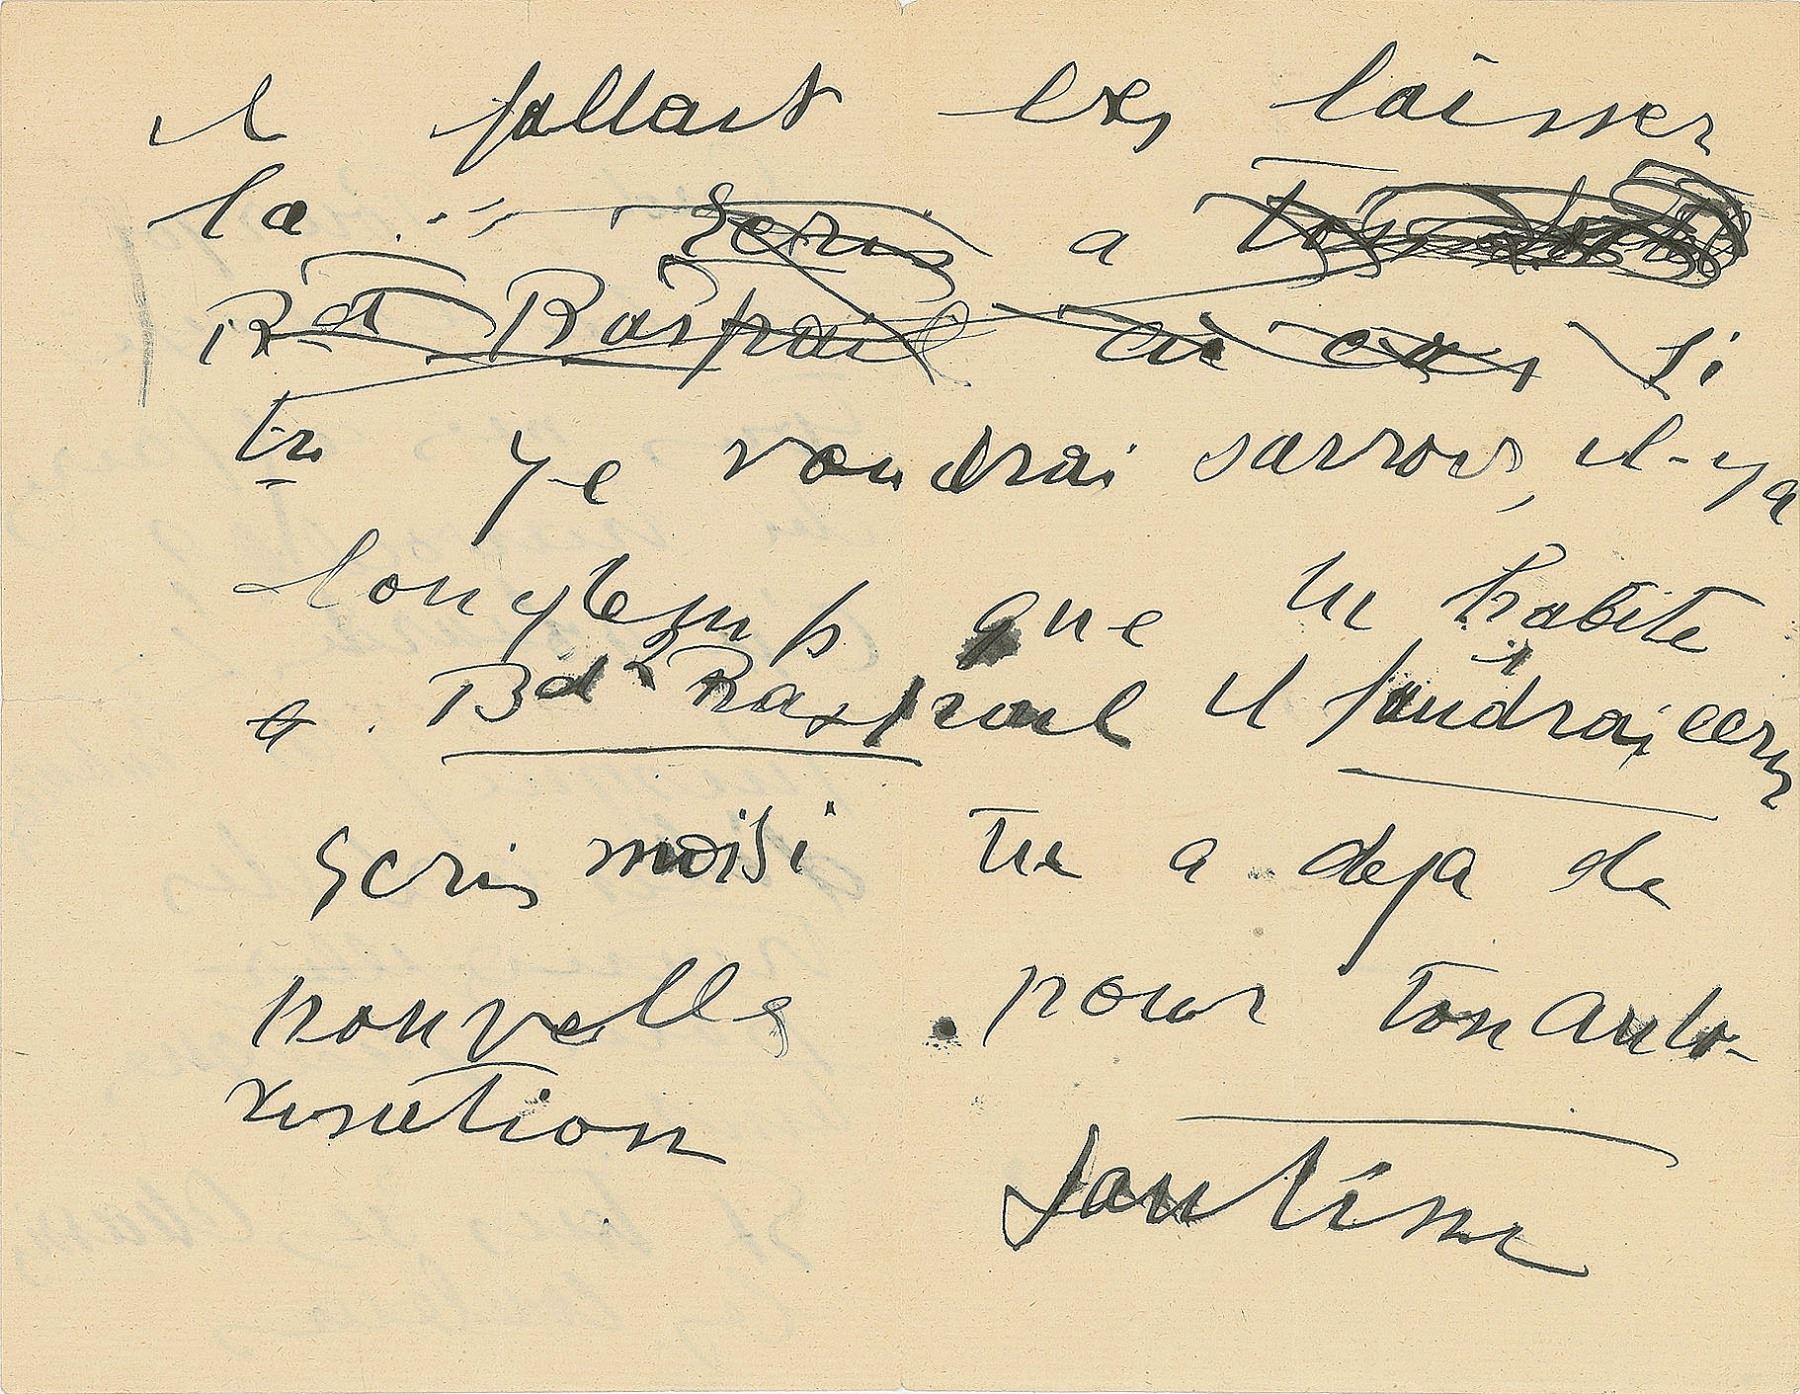 il fallait les laisser
la Ecris a ton
Bd Raspail au cas Si
tu ye voudrai savvoir, il-ya
longtemps que tu habite
a. Bd Raspail il faudrai
Ecris moi si tu a deja de
nouvelle pour ton auto-
risation